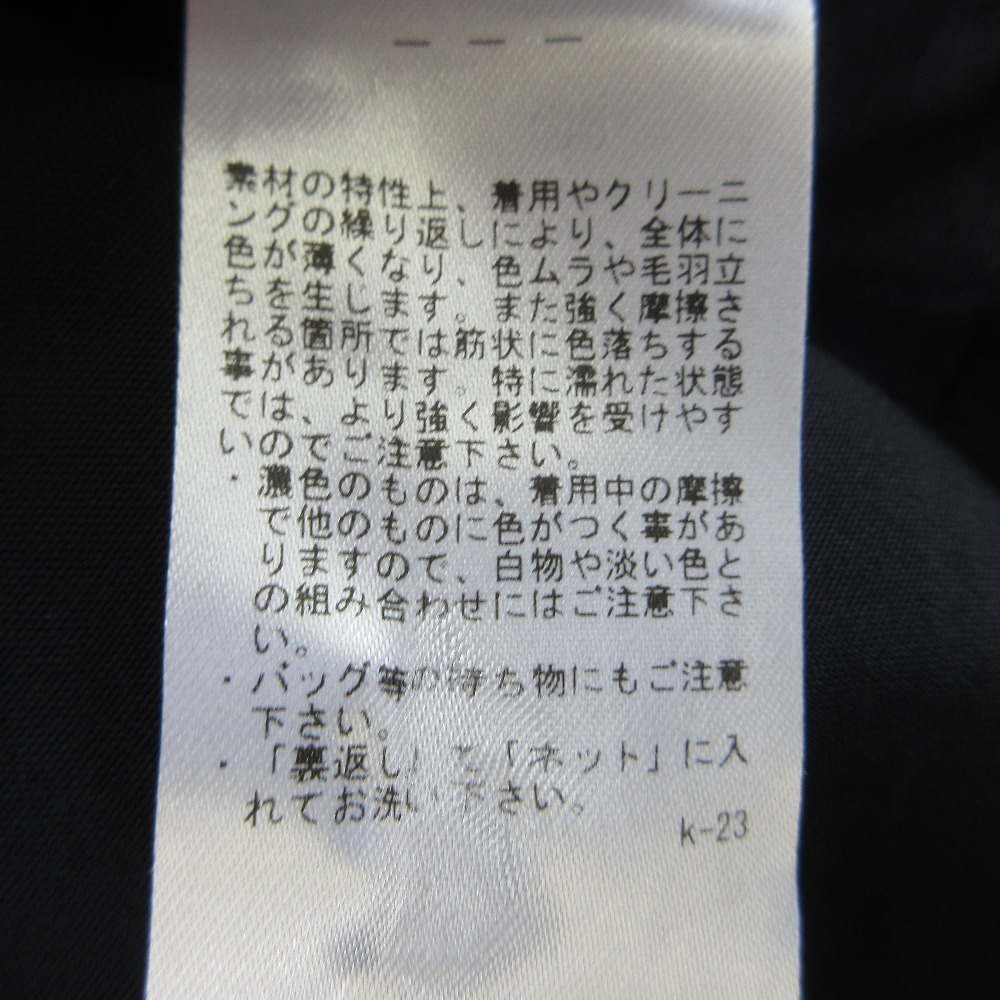 — — —
素材の特性上、着用やクリーニ
ングの繰り返しにより、全体に
色が薄くなり、色ムラや毛羽立
ちを生じます。また強く摩擦さ
れる箇所では筋状に色落ちする
事があります。特に濡れた状態
では、より強く影響を受けやす
いのでご注意下さい。
・濃色のものは、着用中の摩擦
で他のものに色がつく事があ
りますので、白物や淡い色と
の組み合わせにはご注意下さ
い。
・バッグ等の持ち物にもご注意
下さい。
・「裏返し」 「ネット」に入
れてお洗い下さい。
k-23